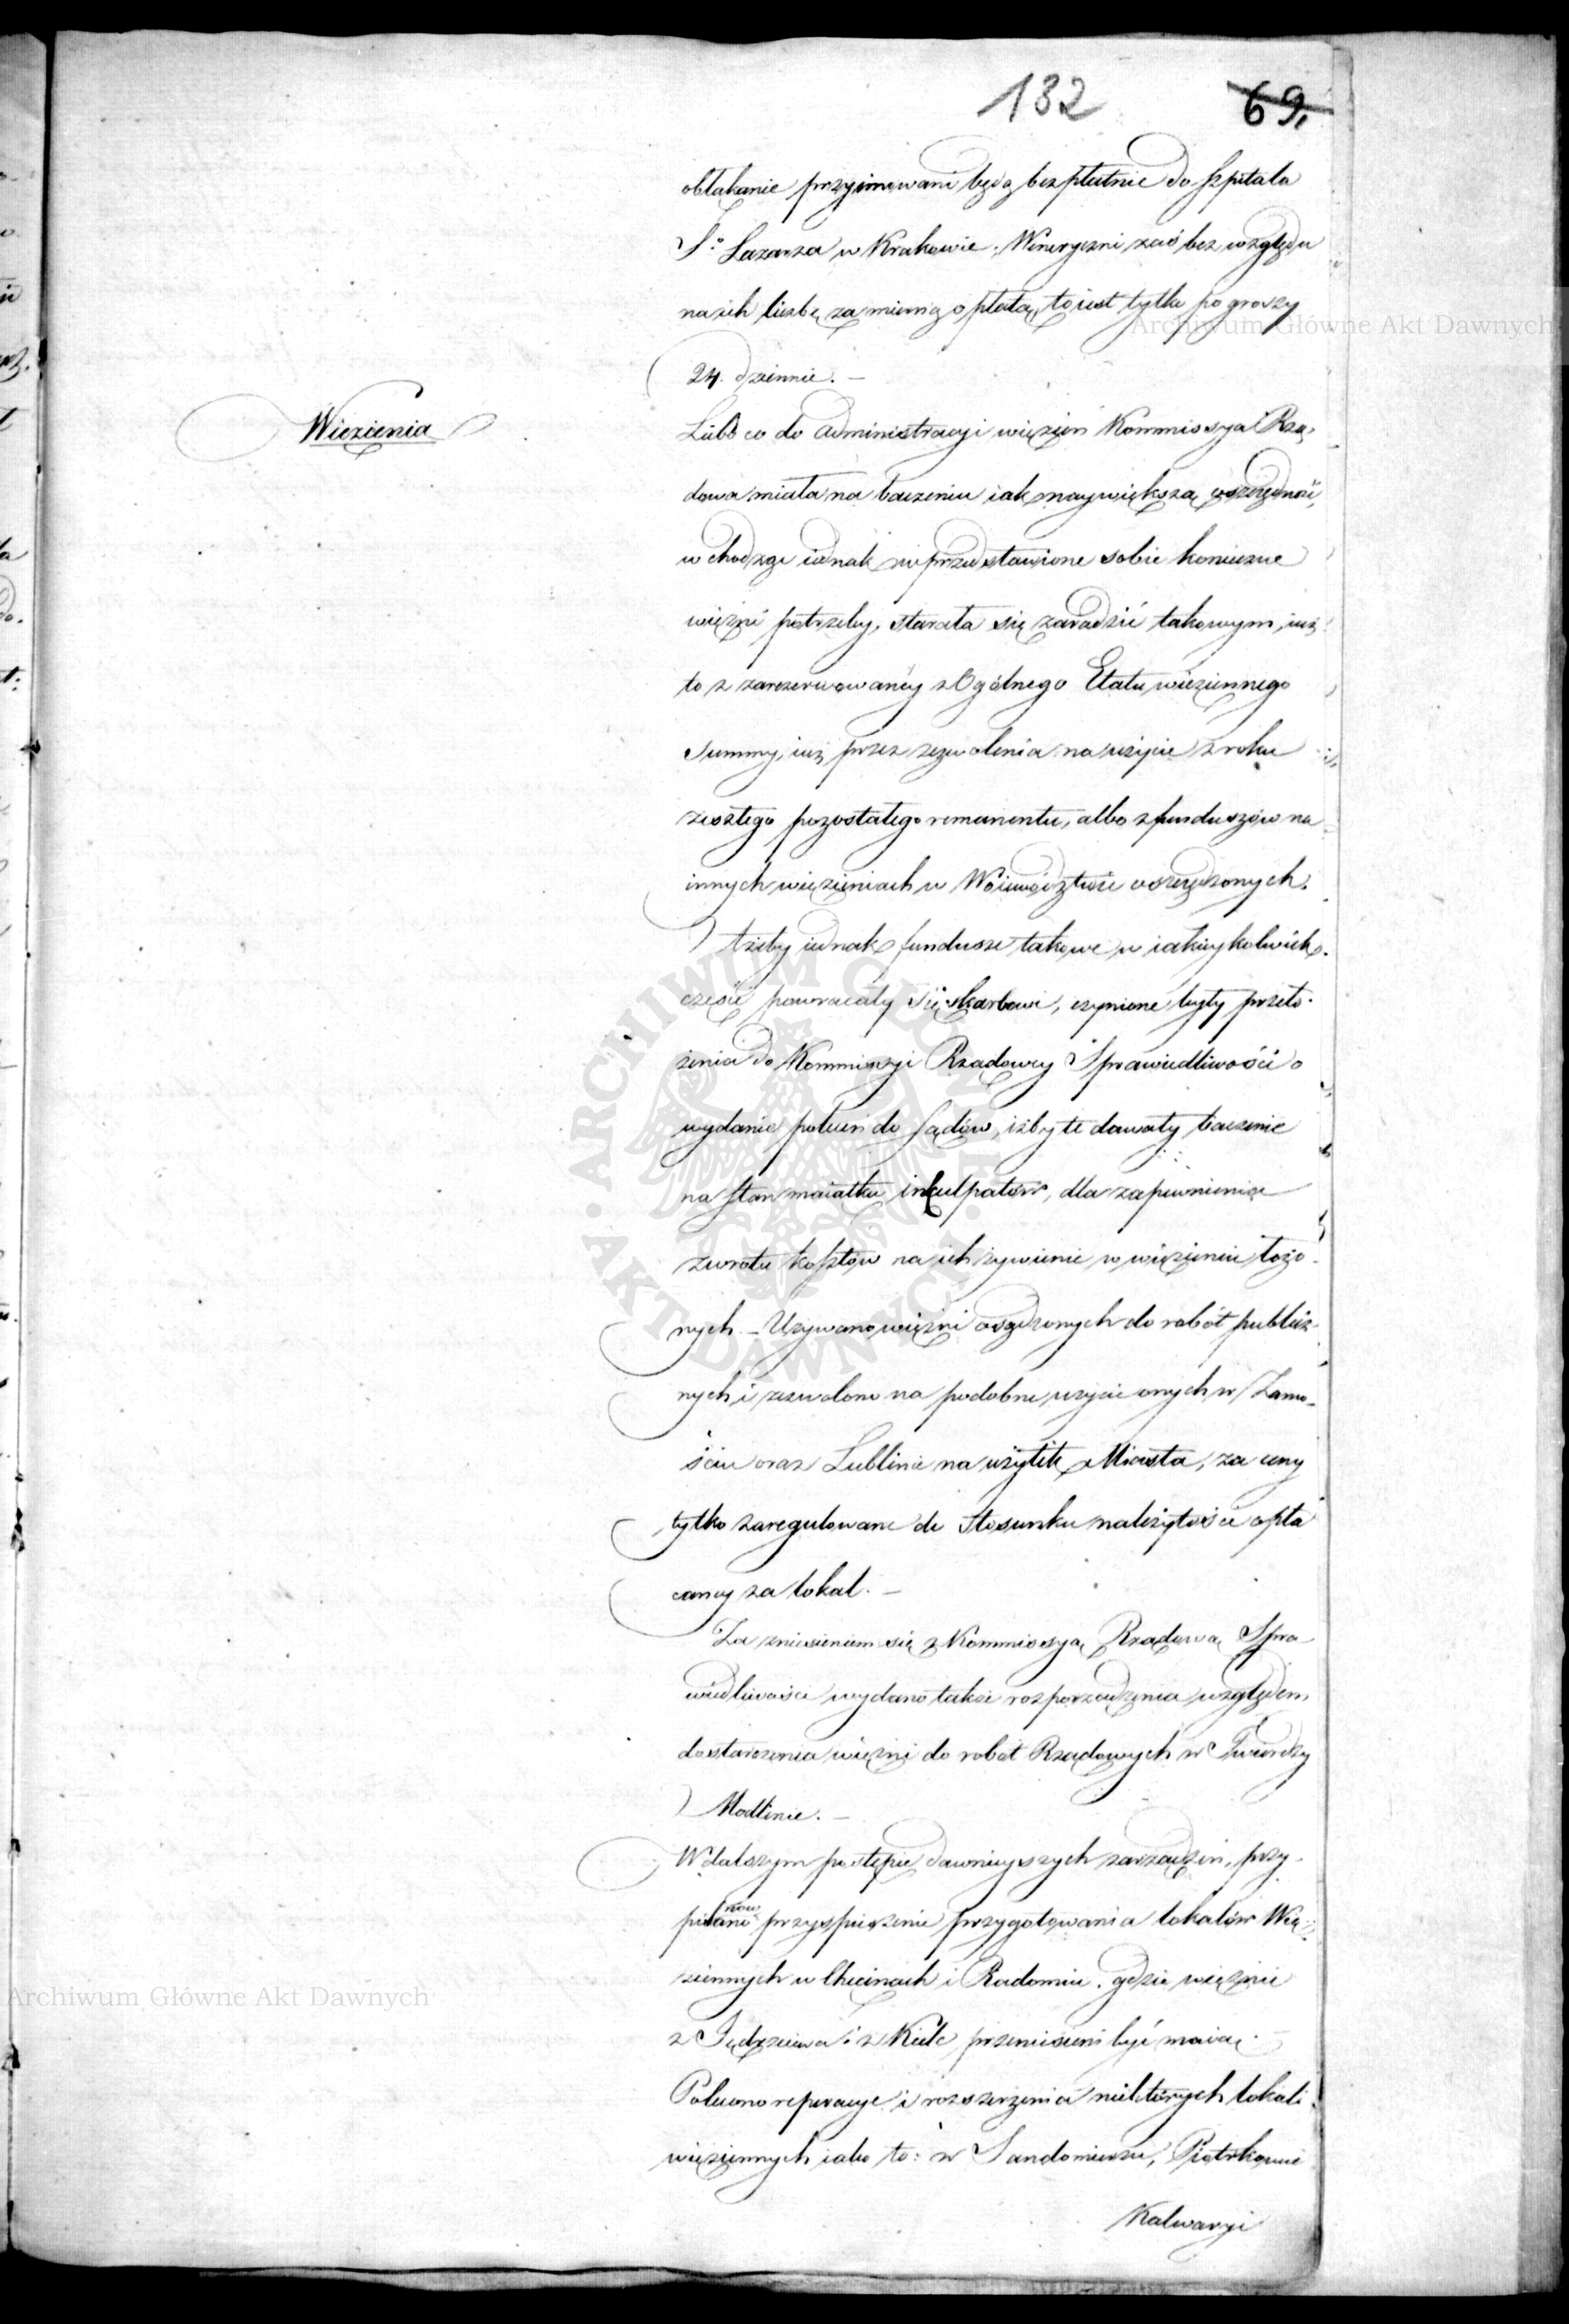 132 69,
obłąkanie przyjmowani będą bezpłatnie do Szpitala
Sº Łazarza w Krakowie. Weneryczni zaś bez względu
na ich liczbę za mierną opłatą, to iest tylko po groszy
24. dziennie. –
Więzienia
Lubo co do administracyi więzień Kommissya Rzą-
dowa miała na baczeniu iak naywiększą oszczędność,
wchodząc iednak w przedstawione sobie konieczne
więźni potrzeby, starała się zaradzić takowym, iuż
to z zarezerwowanéy z Ogólnego Etatu więziennego
Summy, iuż przez zezwolenia na użycie z roku
zeszłego pozostałego remanentu, albo z funduszów na
innych więzieniach w Woiewództwie oszczędzonych.
Ażeby iednak fundusze takowe w iakieykolwiek
części powracały się Skarbowi, czynione były przeło-
żenia do Kommissyi Rządowey Sprawiedliwości o
wydanie poleceń do Sądów, iżby te dawały baczenie
na stan maiątku inkulpatów, dla zapewnienia
zwrotu kosztów na ich żywienie w więzieniu łożo-
nych. – Używano więźni osądzonych do robót publicz-
nych i zezwolono na podobne użycie onych w Zamo-
ściu oraz Lublinie na użytek Miasta, za ceny
tylko zaregulowane do stosunku należytości opła
caney za lokal. –
Za zniesieniem się z Kommissyą Rządową Spra
wiedliwości wydano także rozporządzenia względem
dostarczenia więźni do robót Rządowych w Twierdzy
Modlinie. –
W dalszym postępie dawnieyszych zarządzeń, przy-
pomniano przyspieszenie przygotowania lokalów Wię-
ziennych w Chęcinach i Radomiu, gdzie więźnie
z Jędrzeiowa i z Kielc przeniesieni być maią. –
Polecono reperacye i rozszerzenia niektórych lokali
więziennych iako to: w Sandomierzu, Piotrkowie
Kalwaryi
Archiwum Główne Akt Dawnych
Archiwum Główne Akt Dawnych
ARCHIWUM GŁÓWNE AKT DAWNYCH